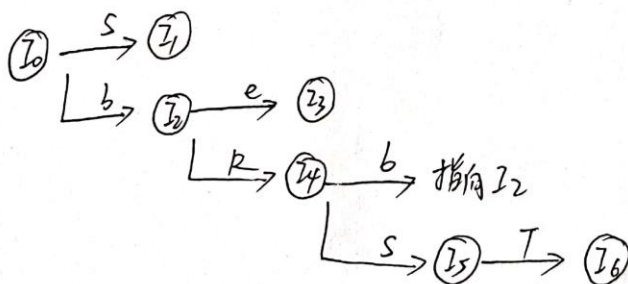 I₀ S I₁
b I₂ e I₃
R I₄ b 指向 I₂
S I₅ T I₆